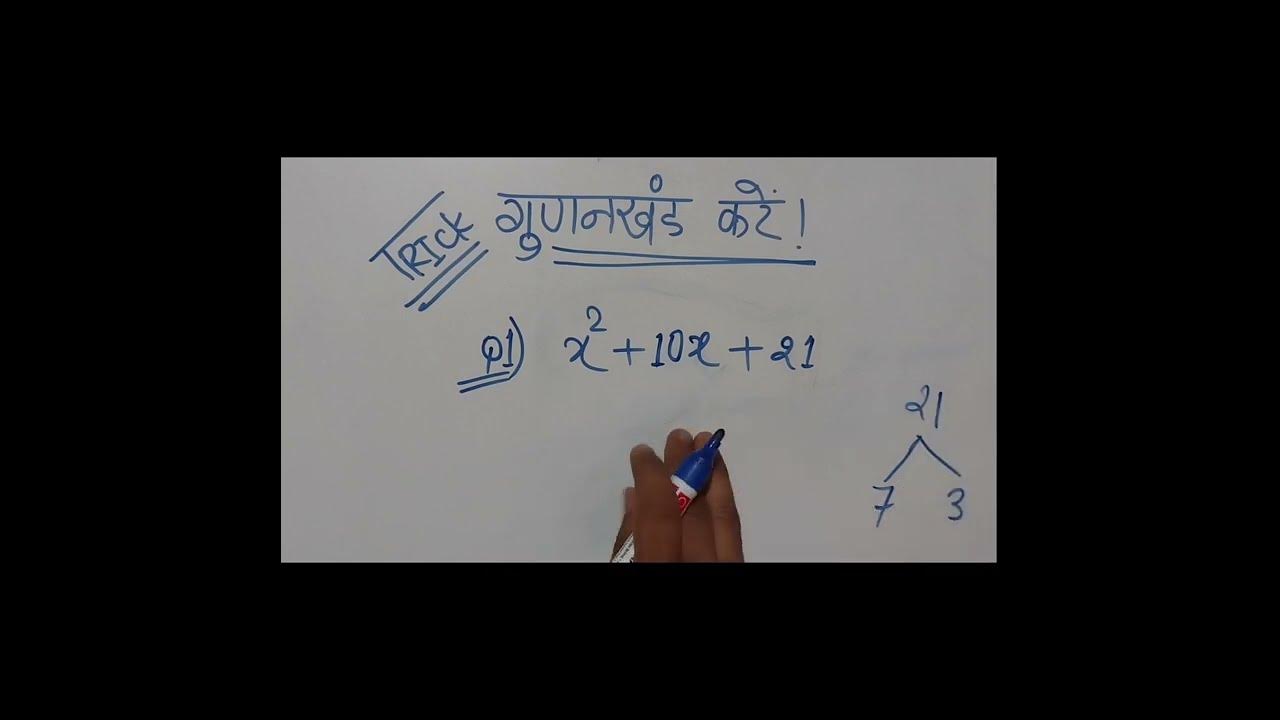 TRICK गुणनखंड करें!
Q1) x² + 10x + 21
21
7 3